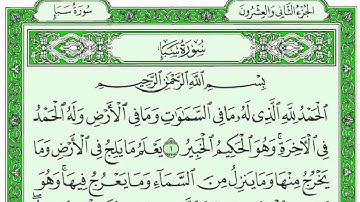 الجزء الثاني والعشرون
سورة سبإ
سورة سبإ
بِسْمِ ٱللَّهِ ٱلرَّحْمَٰنِ ٱلرَّحِيمِ
ٱلْحَمْدُ لِلَّهِ ٱلَّذِى لَهُۥ مَا فِى ٱلسَّمَٰوَٰتِ وَمَا فِى ٱلْأَرْضِ وَلَهُ ٱلْحَمْدُ
فِى ٱلْءَاخِرَةِ ۚ وَهُوَ ٱلْحَكِيمُ ٱلْخَبِيرُ ١ يَعْلَمُ مَا يَلِجُ فِى ٱلْأَرْضِ وَمَا
يَخْرُجُ مِنْهَا وَمَا يَنزِلُ مِنَ ٱلسَّمَآءِ وَمَا يَعْرُجُ فِيهَا ۚ وَهُوَ